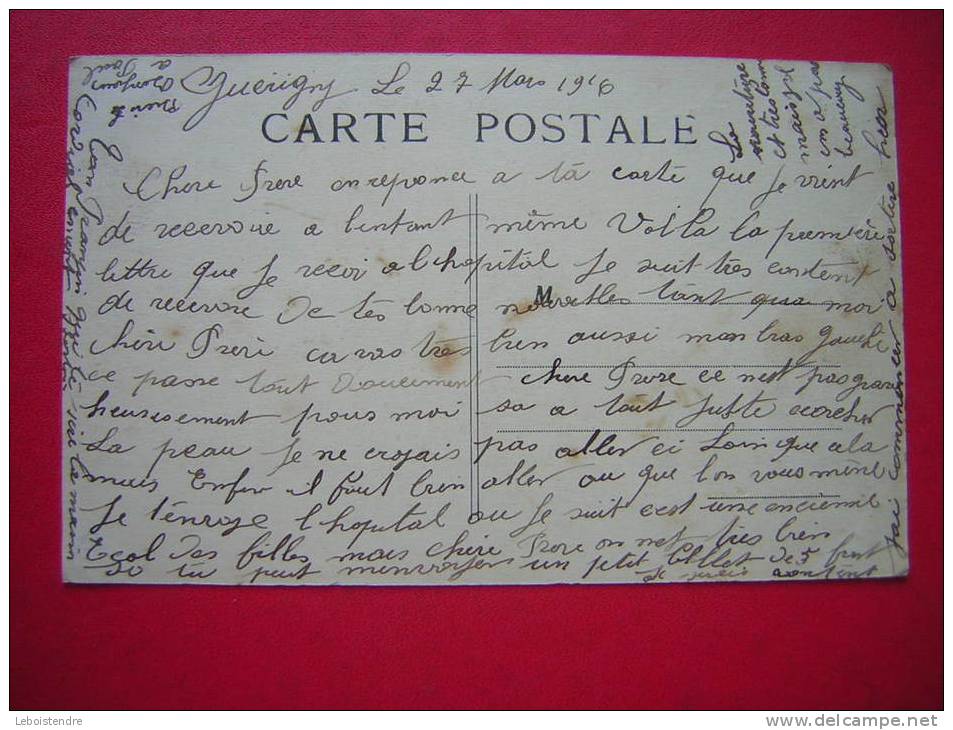 Guerigny Le 27 Mars 1916
CARTE POSTALE
Chere Frere en reponce a ta carte que Je vient
de recevoir a lintant même Voila la première
lettre que Je recoi a lhopital Je suit très content
de recevoir De tes bonne nouvelles tant qua moi
chère Frere ca vas très bien aussi mon bras gauche
ce passe tout doucement chère Frere ce nest pas grave
heureusement pour moi sa a tout juste ecorcher
La peau Je ne croyais pas aller ci Loin que cela
mais Enfin il faut bien aller ou que lon vous mène
Je tenvoye l hopital ou Je suit cest une encienne
Ecol des filles mais chère Frere on net très bien
Si tu peut menvoyer un petit billet de 5 franc
Je serais content
Jai commencer a sortire hier
La
nouriture
et très bonne
mais il
in a pas
beaucoup
Ton Frangin qui te sert la main
Bien le
Bonjour
a